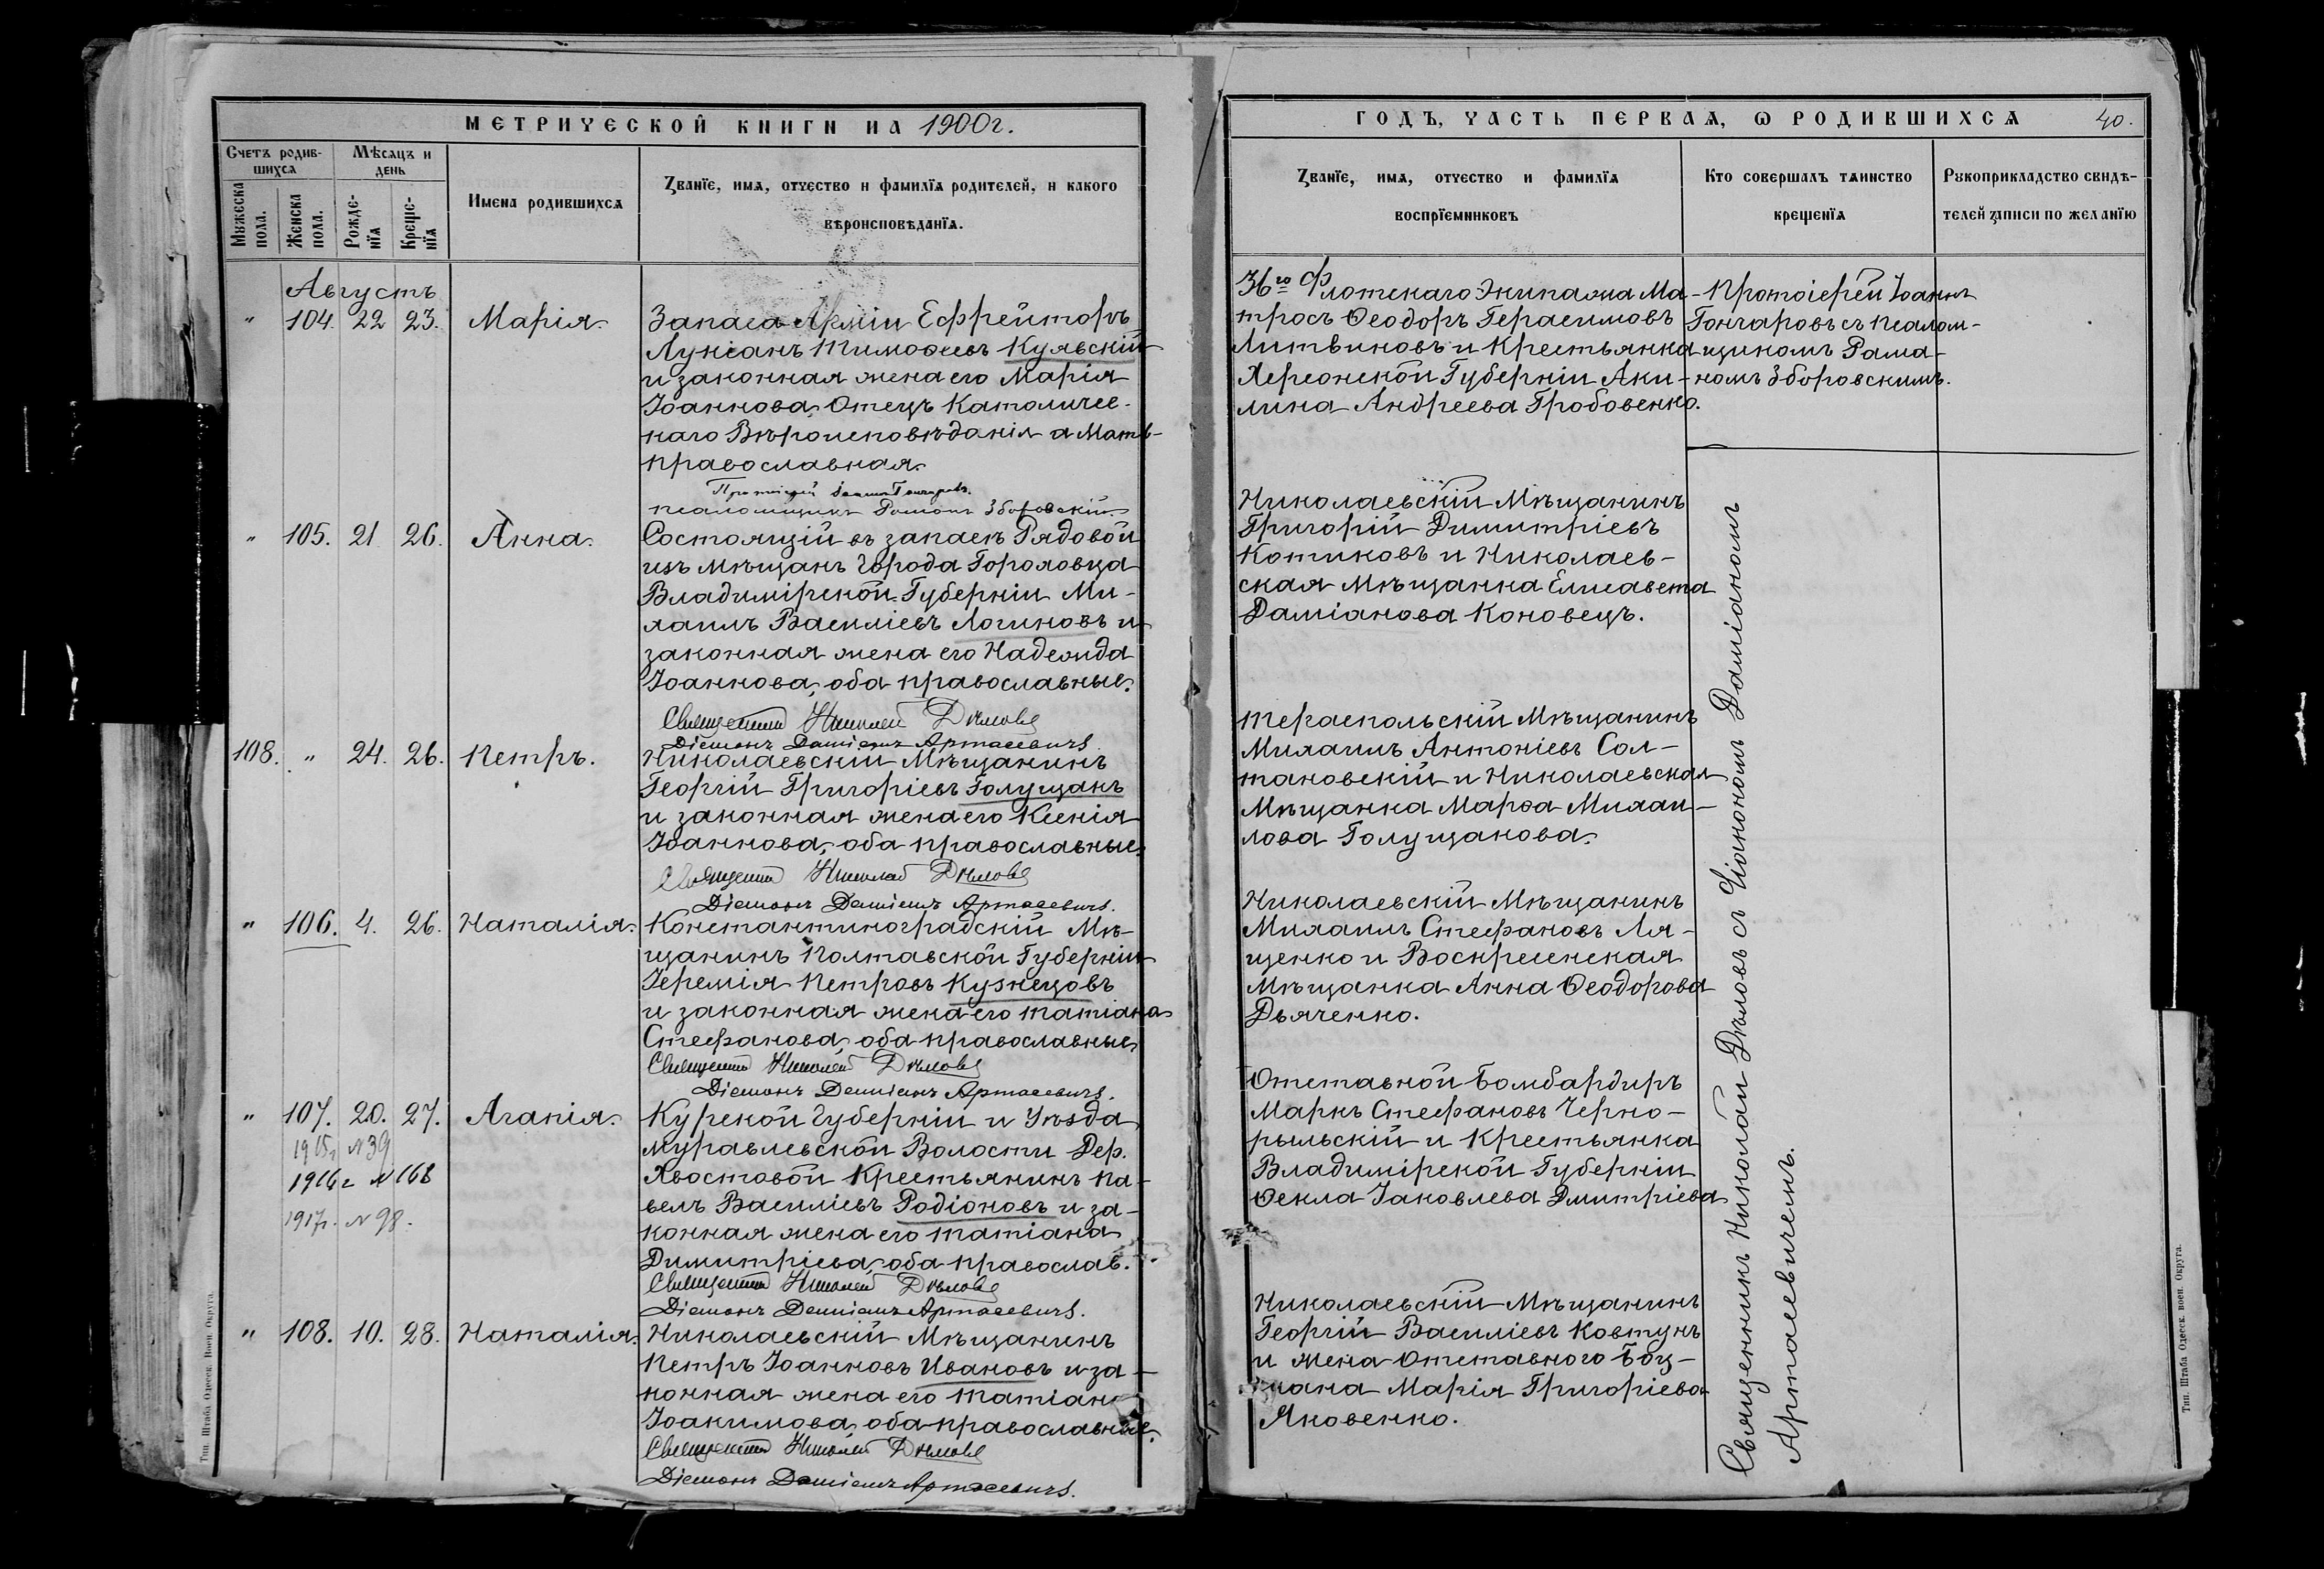 МЕТРИЧЕСКОЙ КНИГИ НА 1900г.
Счетъ родив-
шихся
Мѣсяцъ и
день
Мужеска
пола.
Женска
пола.
Рожде-
нїя
Креще-
нїя
Имена родившихся
Званїе, имя, отчество и фамилїя родителей, и какого
вѣроисповѣданїя.
Августъ
" 104. 22 23. Марія.
Запаса Арміи Ефрейторъ
Лукіанъ Тимоѳеевъ Кулвскій
и законная жена его Марія
Іоаннова, Отецъ Католичес-
каго Вѣроисповѣданія а Мать
православная.
Протоіерей Іоаннъ Гончаровъ.
псаломщикъ Романъ Зборовскій.
" 105. 21 26. Анна.
Состоящій въ запасѣ Рядовой
изъ мѣщанъ города Гороховца
Владимірской Губерніи Ми-
хаилъ Василіевъ Логиновъ и
законная жена его Надежда
Іоаннова, оба православные.
Священникъ Николай Дѣловъ
Діаконъ Даміанъ Артасевичъ.
108. " 24. 26. Петръ.
Николаевскій Мѣщанинъ
Георгій Григоріевъ Голущакъ
и законная жена его Ксенія
Іоаннова, оба православные.
Священникъ Николай Дѣловъ
Діаконъ Даміанъ Артасевичъ.
" 106. 4. 26. Наталія.
Константиноградскій Мѣ-
щанинъ Полтавской Губерніи
Іеремія Петровъ Кузнецовъ
и законная жена его Татіана
Стефанова, оба православные
Священникъ Николай Дѣловъ
Діаконъ Даміанъ Артасевичъ.
" 107. 20. 27. Агапія.
1915г. №39
1916г №168
1917г. №98.
Курской Губерніи и Уѣзда
Муравлевской Волости Дер.
Хвостовой Крестьянинъ Па-
велъ Василіевъ Родіоновъ и за-
конная жена его Татіана
Димитріева, оба православ.
Священникъ Николай Дѣловъ
Діаконъ Даміанъ Артасевичъ.
" 108. 10. 28. Наталія.
Николаевскій Мѣщанинъ
Петръ Іоанновъ Ивановъ и за-
конная жена его Татіана
Іоакимова, оба православные.
Священникъ Николай Дѣловъ
Діаконъ Даміанъ Артасевичъ.
Тип. Штаба Одесск. Воен. Округа.
ГОДЪ, ЧАСТЬ ПЕРВАЯ, Ѡ РОДИВШИХСЯ 40.
Званїе, имя, отчество и фамилїя
воспрїемниковъ
Кто совершалъ таинство
крещенїя
Рукоприкладство свидѣ-
телей записи по желанїю
36го Флотскаго Экипажа Ма-
тросъ Ѳеодоръ Герасимовъ
Литвиновъ и Крестьянка
Херсонской Губерніи Аки-
лина Андреева Гробовенко.
Протоіерей Іоаннъ
Гончаровъ съ псалом-
щикомъ Рома-
номъ Зборовскимъ.
Николаевскій Мѣщанинъ
Григорій Димитріевъ
Котиковъ и Николаев-
ская Мѣщанка Елисавета
Даміанова Коновецъ.
Тераспольскій Мѣщанинъ
Михаилъ Антоніевъ Сол-
тановскій и Николаевская
Мѣщанка Марѳа Михаи-
лова Голущакова.
Николаевскій Мѣщанинъ
Михаилъ Стефановъ Ля-
щенко и Воскресенская
Мѣщанка Анна Ѳеодорова
Дьяченко.
Отставной Бомбардиръ
Маркъ Стефановъ Черно-
рыльскій и Крестьянка
Владимірской Губерніи
Ѳекла Іаковлева Дмитріева
Николаевскій Мѣщанинъ
Георгій Василіевъ Ковтунъ
и жена Отставного Боц-
мана Марія Григоріева
Яковенко.
Священникъ Николай Дѣловъ съ Діакономъ Даміаномъ
Артасевичемъ.
Тип. Штаба Одесск. воен. Округа.